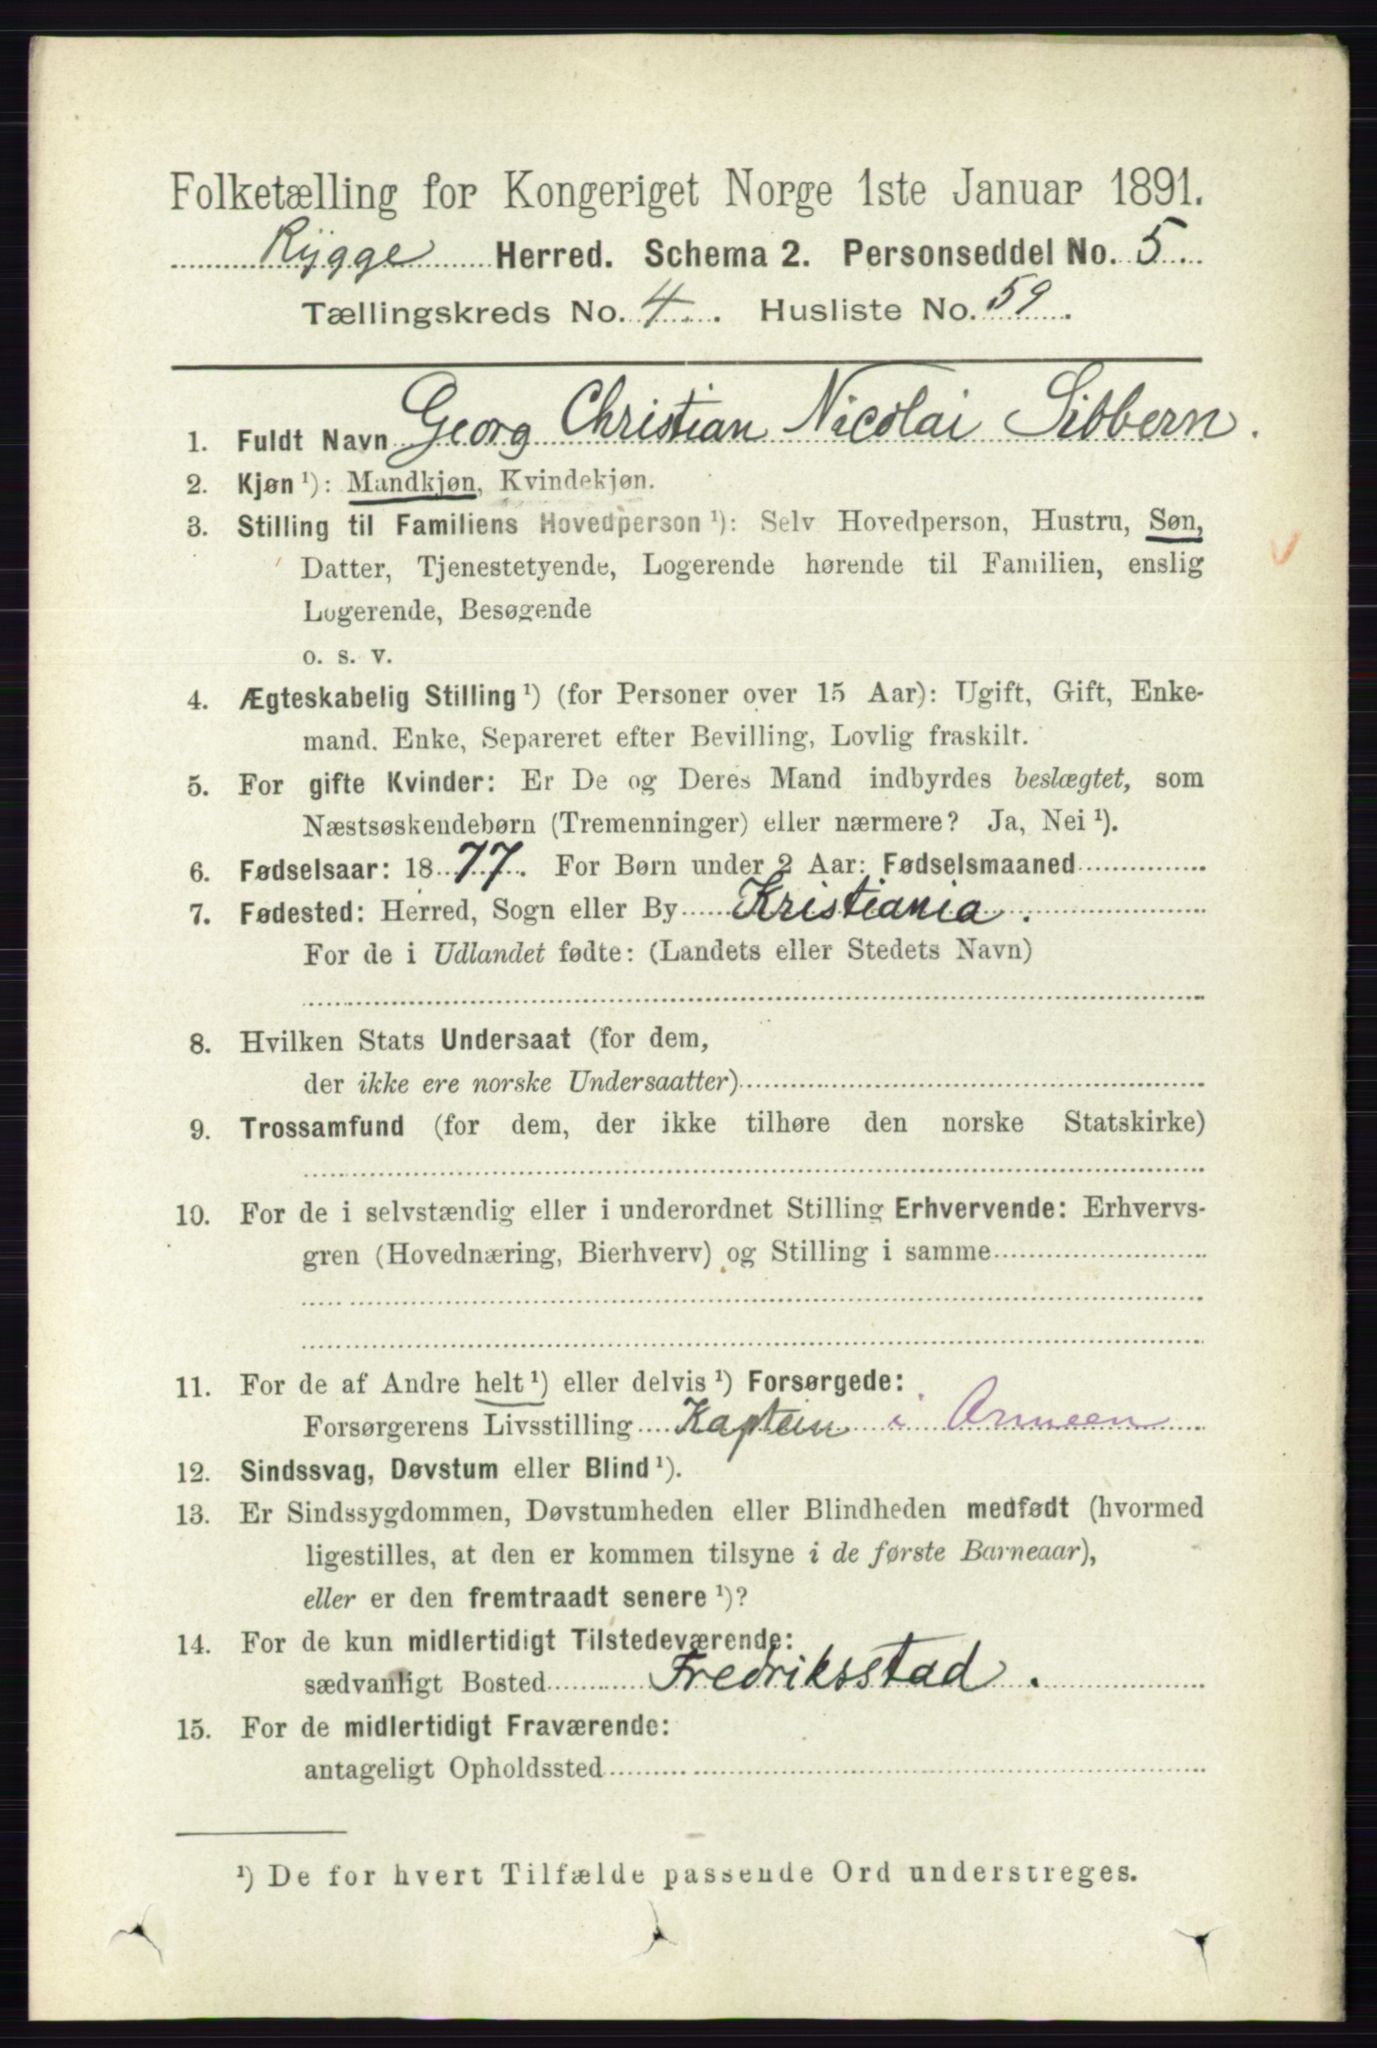 Folketælling for Kongeriget Norge 1ste Januar 1891.
Rygge Herred. Schema 2. Personseddel No. 5
Tællingskreds No. 4. Husliste No. 59.
1. Fuldt Navn Georg Christian Nicolai Sibbern.
2. Kjøn ¹): Mandkjøn, Kvindekjøn.
3. Stilling til Familiens Hovedperson ¹): Selv Hovedperson, Hustru, Søn,
Datter, Tjenestetyende, Logerende hørende til Familien, enslig
Logerende, Besøgende
o. s. v.
4. Ægteskabelig Stilling ¹) (for Personer over 15 Aar): Ugift, Gift, Enke-
mand. Enke, Separeret efter Bevilling, Lovlig fraskilt.
5. For gifte Kvinder: Er De og Deres Mand indbyrdes beslægtet, som
Næstsøskendebørn (Tremenninger) eller nærmere? Ja, Nei ¹).
6. Fødselsaar: 1877. For Børn under 2 Aar: Fødselsmaaned
7. Fødested: Herred, Sogn eller By Kristiania.
For de i Udlandet fødte: (Landets eller Stedets Navn)
8. Hvilken Stats Undersaat (for dem,
der ikke ere norske Undersaatter)
9. Trossamfund (for dem, der ikke tilhøre den norske Statskirke)
10. For de i selvstændig eller i underordnet Stilling Erhvervende: Erhvervs-
gren (Hovednæring, Bierhverv) og Stilling i samme
11. For de af Andre helt ¹) eller delvis ¹) Forsørgede:
Forsørgerens Livsstilling Kaptein i Armeen
12. Sindssvag, Døvstum eller Blind ¹).
13. Er Sindssygdommen, Døvstumheden eller Blindheden medfødt (hvormed
ligestilles, at den er kommen tilsyne i de første Barneaar),
eller er den fremtraadt senere ¹)?
14. For de kun midlertidigt Tilstedeværende:
sædvanligt Bosted Fredriksstad.
15. For de midlertidigt Fraværende:
antageligt Opholdssted
¹) De for hvert Tilfælde passende Ord understreges.